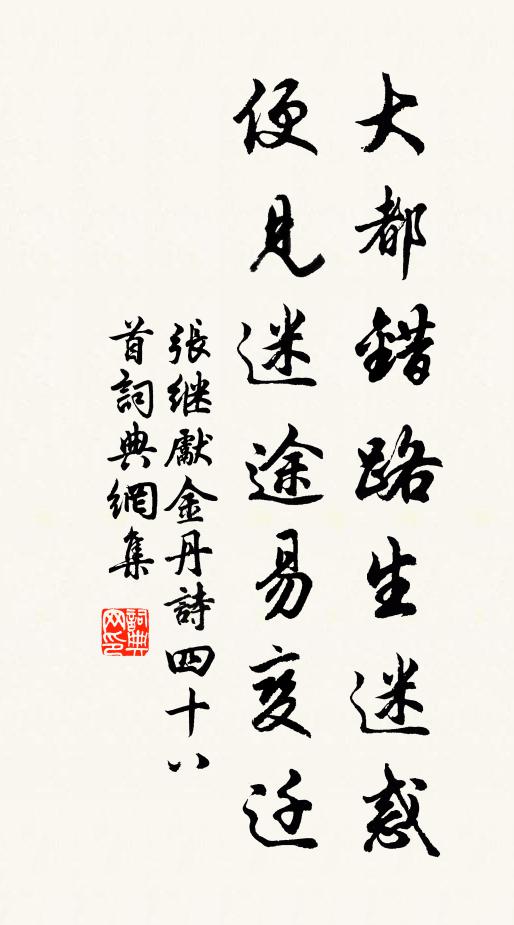 大都錯路生迷惑
便見迷途易变迁
張继獻金丹詩四十八
首詞典網集
詞典
网印